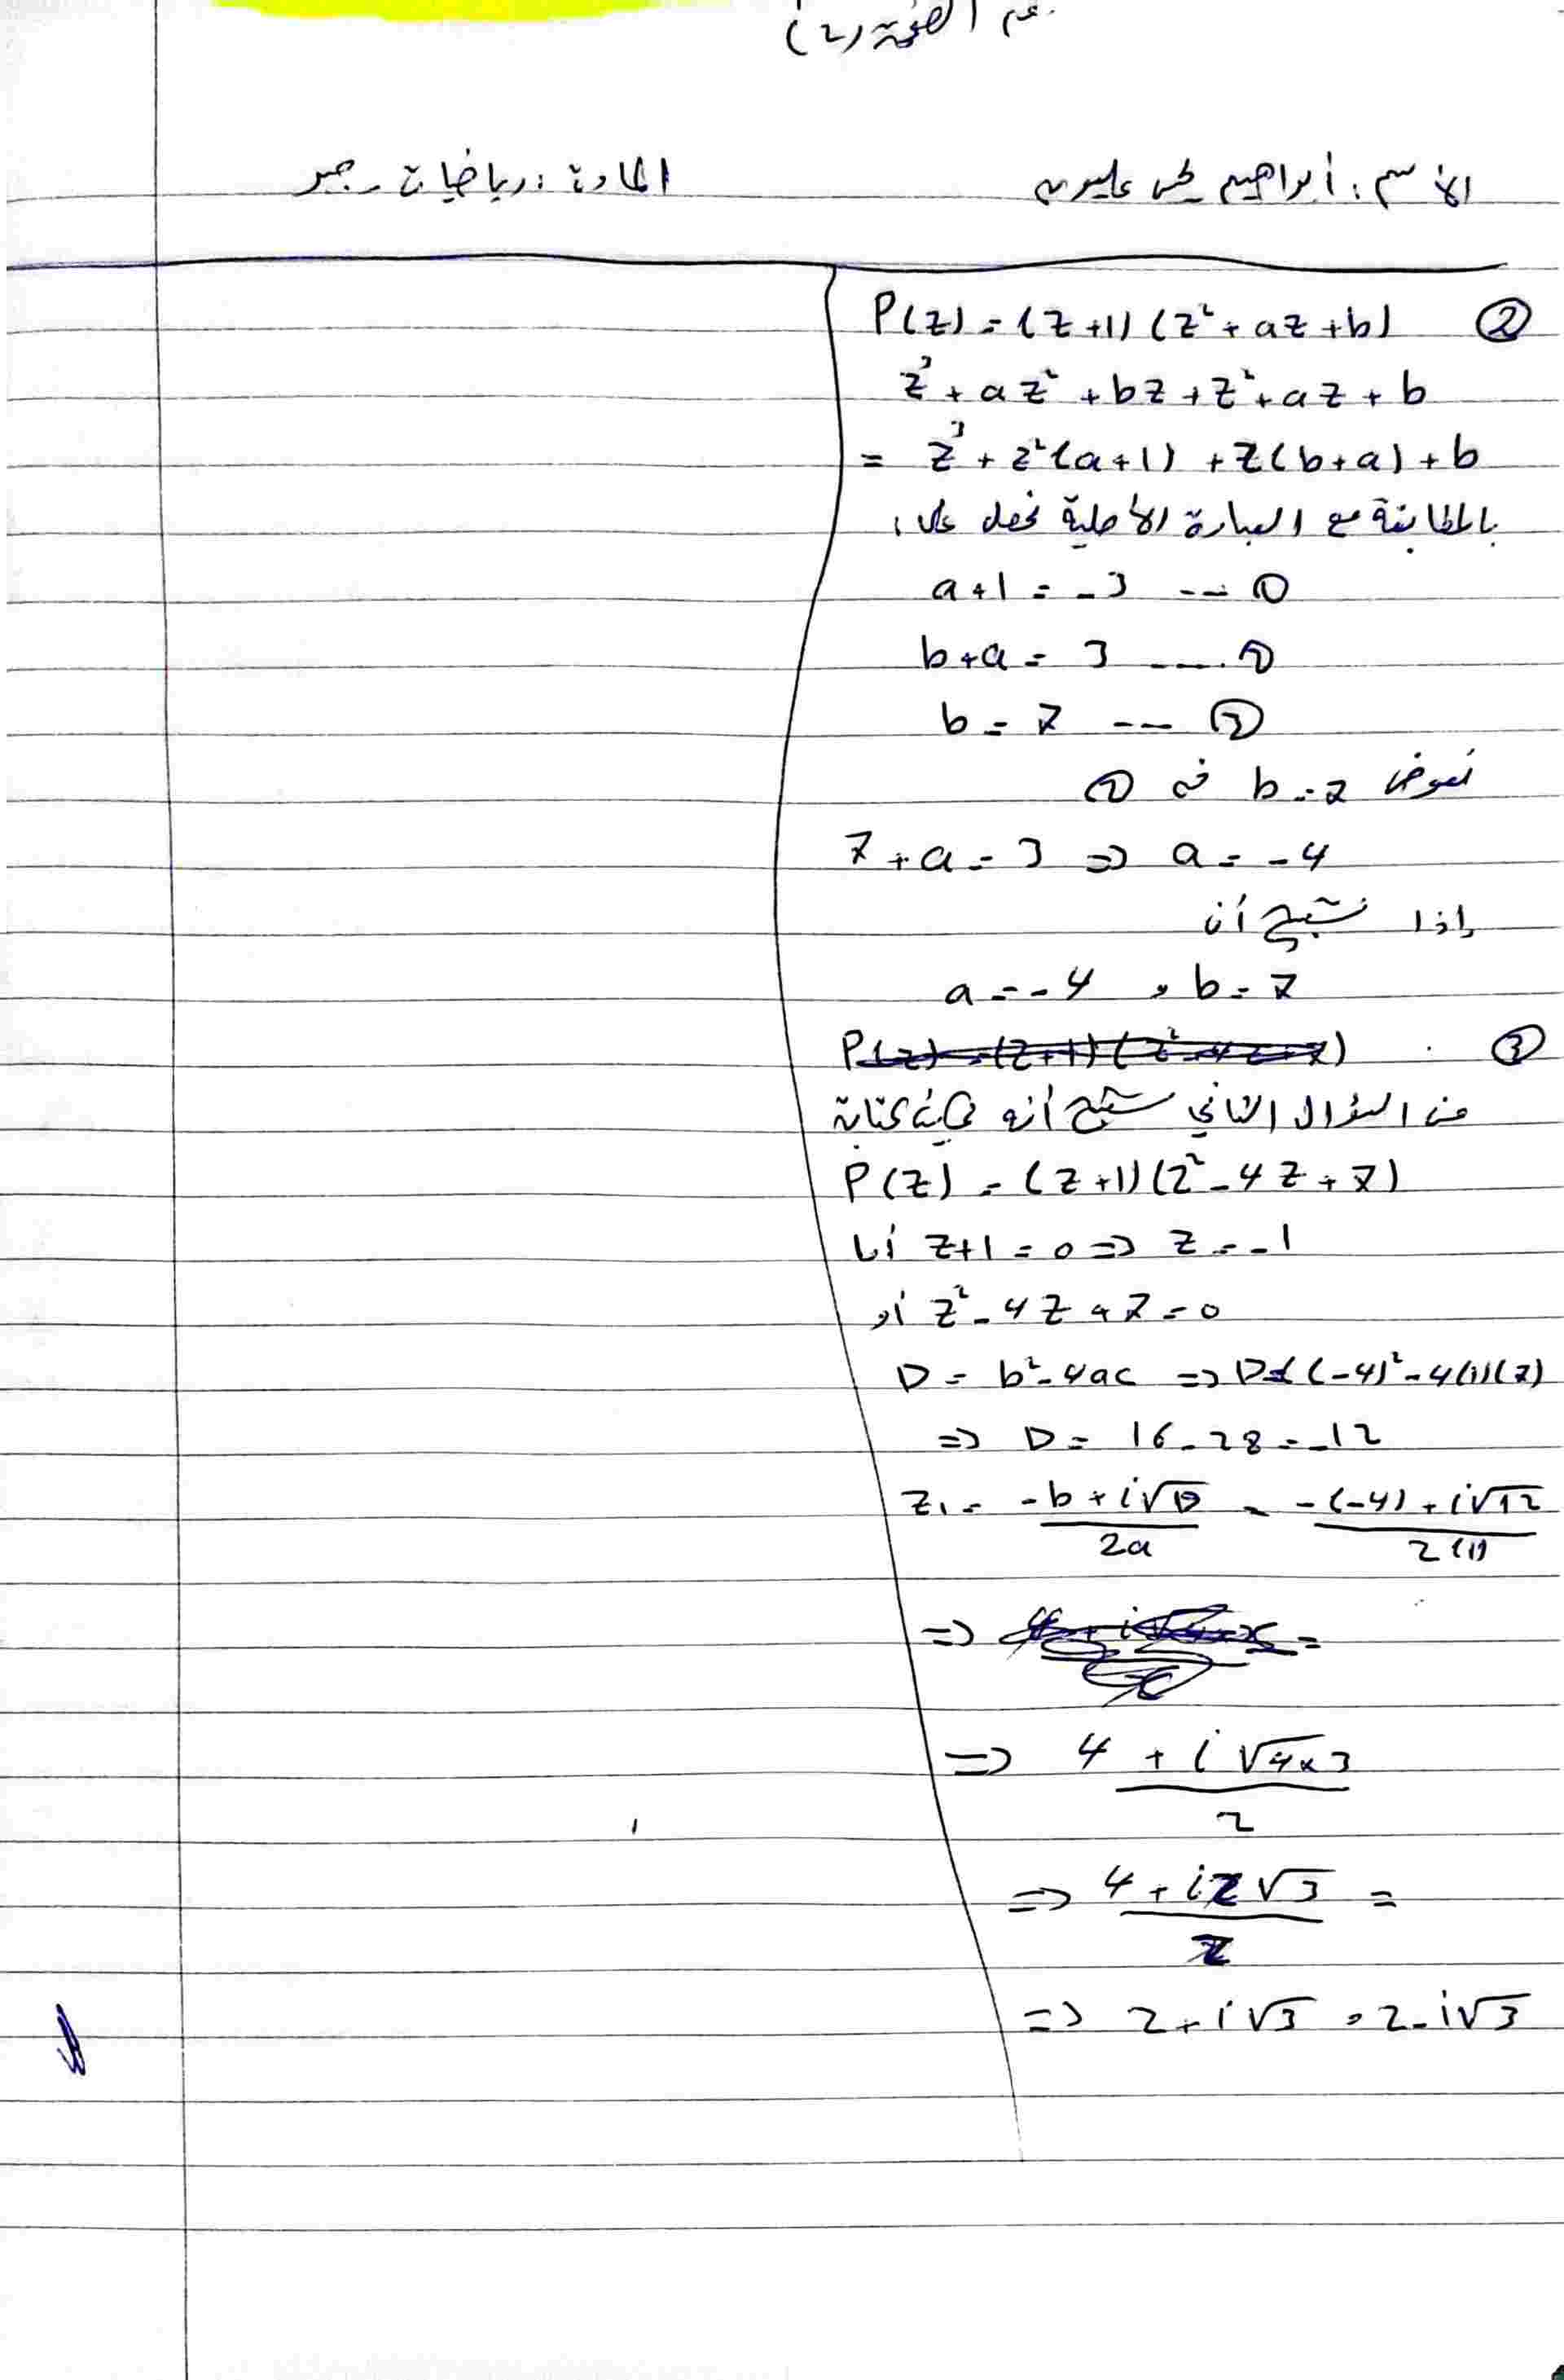 رقم الصفحة (2)
الأسم: أبراهيم يحيى
المادة: رياضيات - جبر
② P(z) = (z+1)(z² + az + b)
z³ + az² + bz + z² + az + b
= z³ + z²(a+1) + z(b+a) + b
بالمطابقة مع العبارة الأصلية نحصل على:
a+1 = -3 --- ①
b+a = 3 ---- ②
b = 7 --- ③
نعوض b = 7 في ②
7 + a = 3 => a = -4
إذا نستنتج أن
a = -4 , b = 7
③ P(z) = (z+1)(z² - 4z + 7)
من السؤال الثاني نستنتج أنه يمكن كتابة
P(z) = (z+1)(z² - 4z + 7)
أما z+1 = 0 => z = -1
أو z² - 4z + 7 = 0
D = b² - 4ac => D = (-4)² - 4(1)(7)
=> D = 16 - 28 = -12
z₁ = (-b + i√D)/2a = (-(-4) + i√12)/2(1)
=> =
=> (4 + i√4×3)/2
=> (4 + i2√3)/2 =
=> 2 + i√3 , 2 - i√3